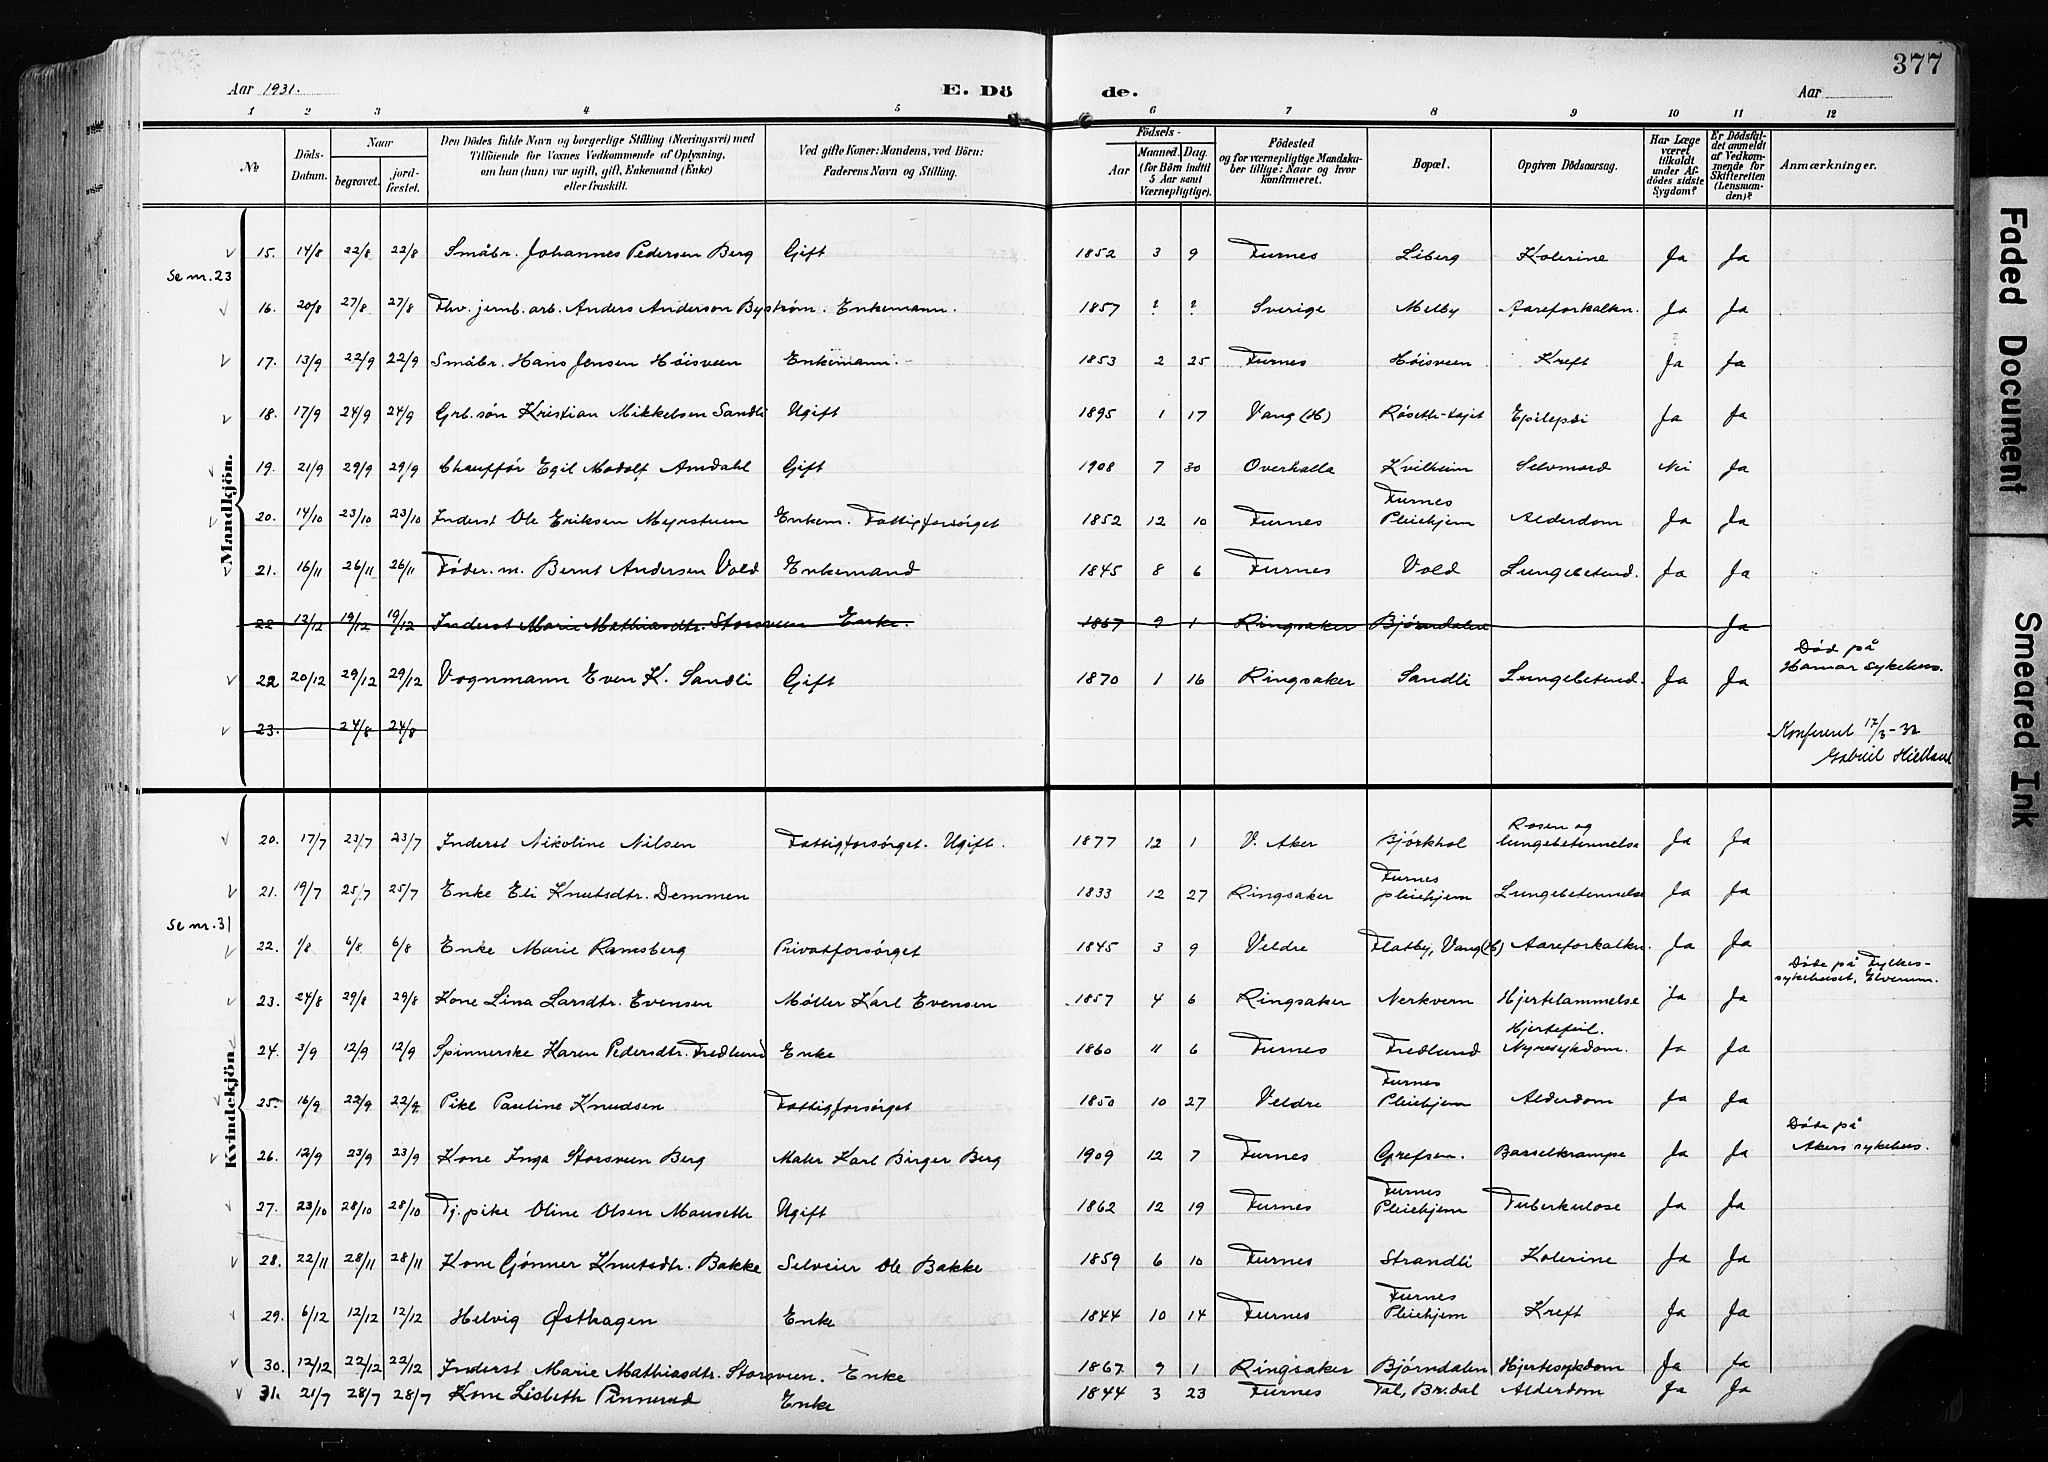 377
Aar 1931.
E. Dö de.
Aar
1 2 3 4 5 6 7 8 9 10 11 12
No
Döds-Datum.
Naar
begravet.
jord-fæstet.
Den Dödes fulde Navn og borgerlige Stilling (Næringsvei) med
Tilföiende for Voxnes Vedkommende af Oplysning,
om han (hun) var ugift, gift, Enkemand (Enke)
eller fraskilt.
Ved gifte Koner: Mandens, ved Börn:
Faderens Navn og Stilling.
Födsels-
Aar
Maaned. Dag.
(for Börn indtil
5 Aar samt
Værnepligtige).
Födested
og for værnepligtige Mandska-
ber tillige: Naar og hvor
konfirmeret.
Bopæl.
Opgiven Dödsaarsag.
Har Læge
været
tilkaldt
under Af-
dödes sidste
Sygdom?
Er Dödsfal-
det anmeldt
af Vedkom-
mende for
Skifteretten
(Lensman-
den)?
Anmærkninger.
Mandkjön.
15. 14/8 22/8 22/8 Småbr. Johannes Pedersen Berg Gift 1852 3 9 Furnes Liberg Kolerine Ja Ja
Se nr. 23
16. 20/8 27/8 27/8 Fhv. jernb. arb. Anders Anderson Byström. Enkemann. 1857 ? ? Sverige Melby Aareforkalkn. Ja Ja
17. 13/9 22/9 22/9 Småbr. Hans Jensen Höisveen Enkemann. 1853 2 25 Furnes Höisveen Kreft Ja Ja
18. 17/9 24/9 24/9 Grb. søn Kristian Mikkelsen Sandli Ugift 1895 1 17 Vang (H) Røseth-tajet Epilepsi Ja Ja
19. 21/9 29/9 29/9 Chauffør Egil Modolf Amdahl Gift 1908 7 30 Overhalla Kvilheim Selvmord Nei Ja
20. 14/10 23/10 23/10 Inderst Ole Eriksen Myrstuen Enkem. Fattigforsørget 1852 12 10 Furnes Furnes Pleiehjem Alderdom Ja Ja
21. 16/11 26/11 26/11 Föder. m. Bernt Andersen Vold Enkemand 1845 8 6 Furnes Vold Lungebetend. Ja Ja
22 13/12 19/12 19/12 Inderst Marie Mathiasdtr. Storsveen Enke. 1867 9 1 Ringsaker Bjørndalen Ja
22 20/12 29/12 29/12 Vognmann Even K. Sandli Gift 1870 1 16 Ringsaker Sandli Lungebetend. Ja Ja Död på Hamar sykehus.
23. 24/8 24/8
Konferert 17/3-32
Gabriel Hielland
Kvindekjön.
20. 17/7 23/7 23/7 Inderst Nikoline Nilsen Fattigforsørget. Ugift. 1877 12 1 V. Aker Bjørkhol Rosen og lungebetennelse Ja Ja
21. 19/7 25/7 25/7 Enke Eli Knutsdtr. Demmen 1833 12 27 Ringsaker Furnes pleiehjem Lungebetennelse Ja Ja
Se nr. 31
22. 1/8 6/8 6/8 Enke Marie Ramsberg Privatforsørget 1845 3 9 Veldre Flatby, Vang (H) Aareforkalkn. Ja Ja
23. 24/8 29/8 29/8 Kone Lina Larsdtr. Evensen Møller Karl Evensen 1857 4 6 Ringsaker Nerkvern Hjertelammelse Ja Ja Døde på Fylkes-sykehuset, Elverum.
24. 3/9 12/9 12/9 Spinnerske Karen Pedersdtr. Fredlund Enke 1860 11 6 Furnes Fredlund Hjertefeil. Nyresykdom. Ja Ja
25. 16/9 22/9 22/9 Pike Pauline Knudsen Fattigforsørget 1850 10 27 Veldre Furnes Pleiehjem Alderdom Ja Ja
26. 12/9 23/9 23/9 Kone Inga Storsveen Berg Maler Karl Birger Berg 1909 12 7 Furnes Grefsen. Barselkrampe Ja Ja Døde på Akers sykehus.
27. 23/10 28/10 28/10 Tj. pike Oline Olsen Mauseth Ugift 1862 12 19 Furnes Furnes Pleiehjem Tuberkulose Ja Ja
28. 22/11 28/11 28/11 Kone Gjönner Knutsdtr. Bakke Selveier Ole Bakke 1859 6 10 Furnes Strandli Kolerine Ja Ja
29. 6/12 12/12 12/12 Helvig Østhagen Enke 1844 10 14 Furnes Furnes Pleiehjem Kreft Ja Ja
30. 12/12 22/12 22/12 Inderst Marie Mathiasdtr. Storsveen. Enke 1867 9 1 Ringsaker Bjørndalen Hjertesykdom Ja Ja
31. 21/7 28/7 28/7 Kone Lisbeth Pinnerud Enke 1844 3 23 Furnes Tal, Br.dal Alderdom Ja Ja
Faded Document
Smeared Ink